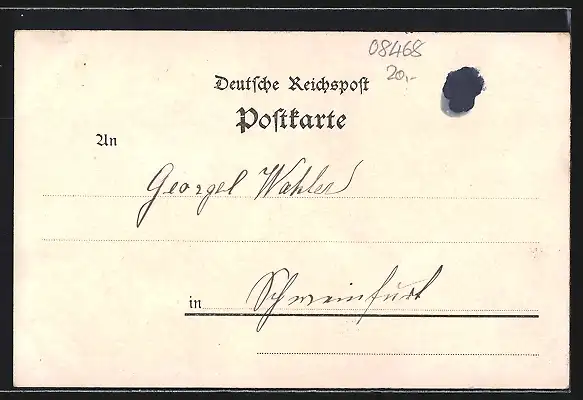 08468
20,-
Deutsche Reichspost
Postkarte
An
Georgel Wahler
in Schweinfurt